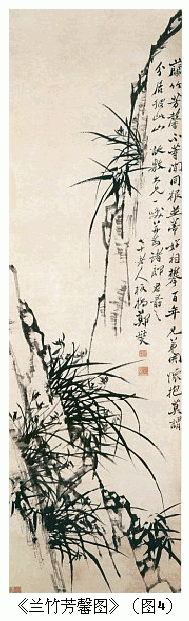 蘭竹芳馨不等閒同根並蒂好相攀百年兄弟開懷抱莫謂
分居彼此山
七十老人板橋鄭燮
《兰竹芳馨图》（图4）